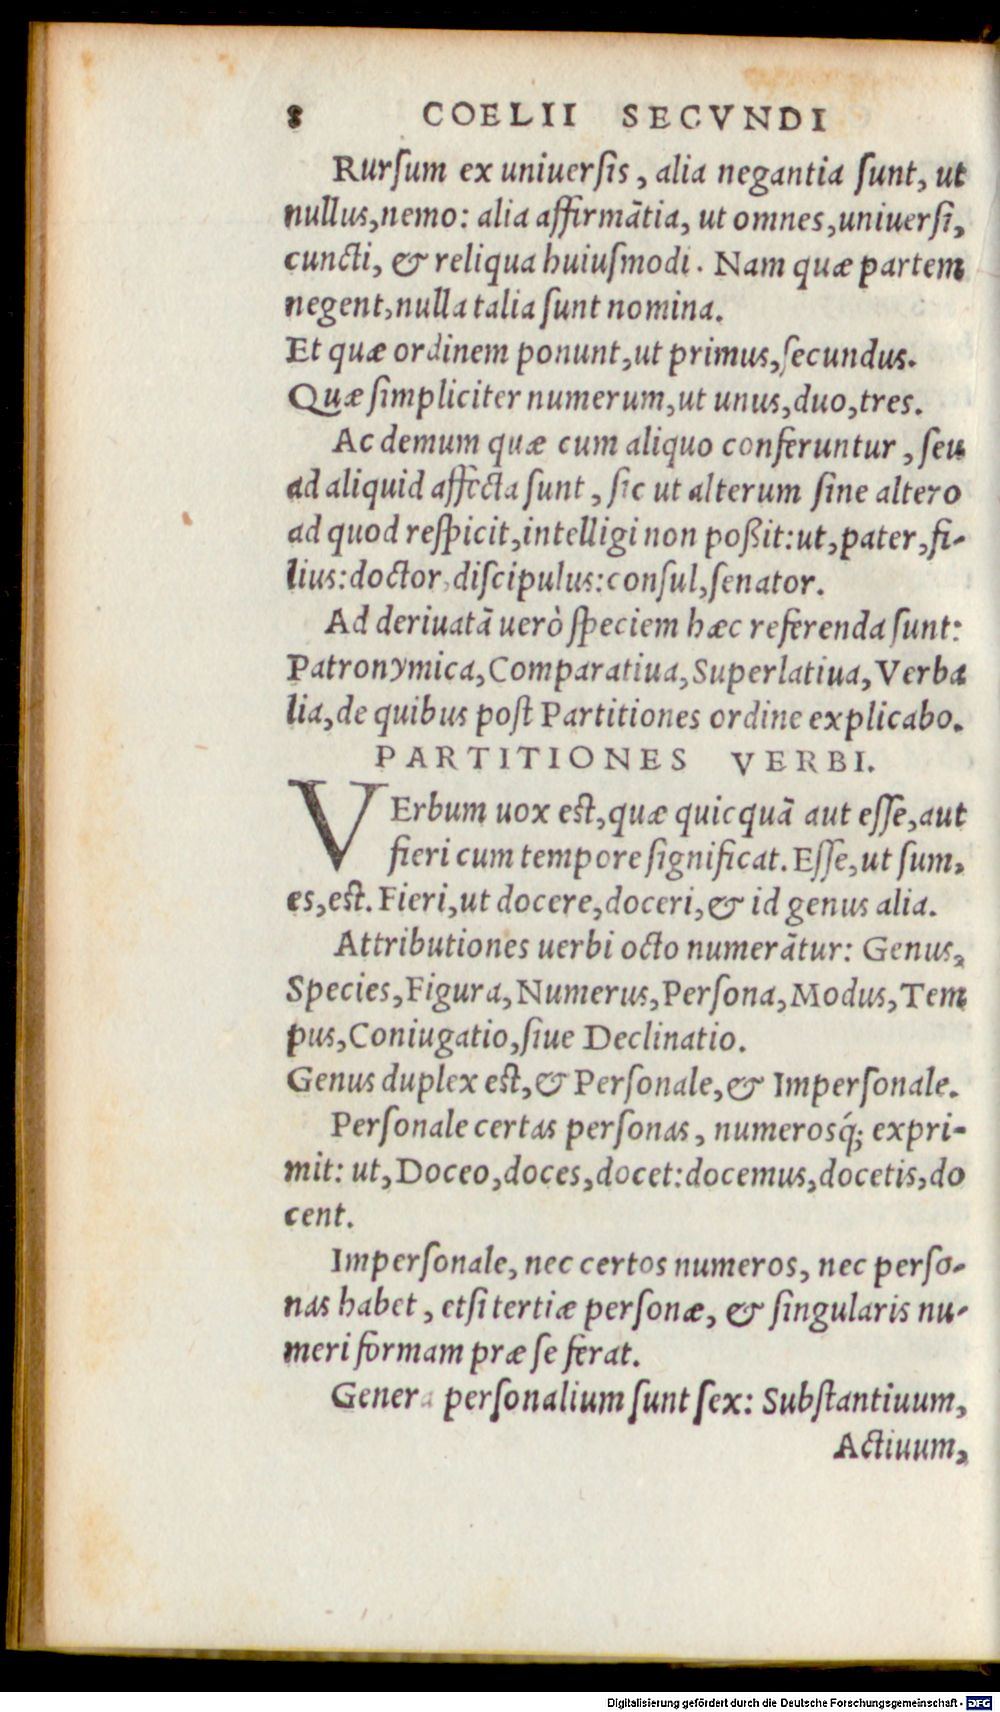 8 COELII SECVNDI
Rurſum ex uniuerſis, alia negantia ſunt, ut
nullus, nemo: alia affirmãtia, ut omnes, uniuerſi,
cuncti, & reliqua huiuſmodi. Nam quæ partem
negent, nulla talia ſunt nomina.
Et quæ ordinem ponunt, ut primus, ſecundus.
Quæ ſimpliciter numerum, ut unus, duo, tres.
Ac demum quæ cum aliquo conferuntur, ſeu
ad aliquid affecta ſunt, ſic ut alterum ſine altero
ad quod reſpicit, intelligi non poßit: ut, pater, fi-
lius: doctor, diſcipulus: conſul, ſenator.
Ad deriuatã uerò ſpeciem hæc referenda ſunt:
Patronymica, Comparatiua, Superlatiua, Verba
lia, de quibus poſt Partitiones ordine explicabo.
PARTITIONES VERBI.
VErbum uox eſt, quæ quicquã aut eſſe, aut
fieri cum tempore ſignificat. Eſſe, ut ſum,
es, eſt. Fieri, ut docere, doceri, & id genus alia.
Attributiones uerbi octo numerãtur: Genus,
Species, Figura, Numerus, Perſona, Modus, Tem
pus, Coniugatio, ſiue Declinatio.
Genus duplex eſt, & Perſonale, & Imperſonale.
Perſonale certas perſonas, numerosq́; expri-
mit: ut, Doceo, doces, docet: docemus, docetis, do
cent.
Imperſonale, nec certos numeros, nec perſo-
nas habet, etſi tertiæ perſonæ, & ſingularis nu-
meri formam præ ſe ferat.
Genera perſonalium ſunt ſex: Subſtantiuum,
Actiuum,
Digitalisierung gefördert durch die Deutsche Forschungsgemeinschaft - DFG